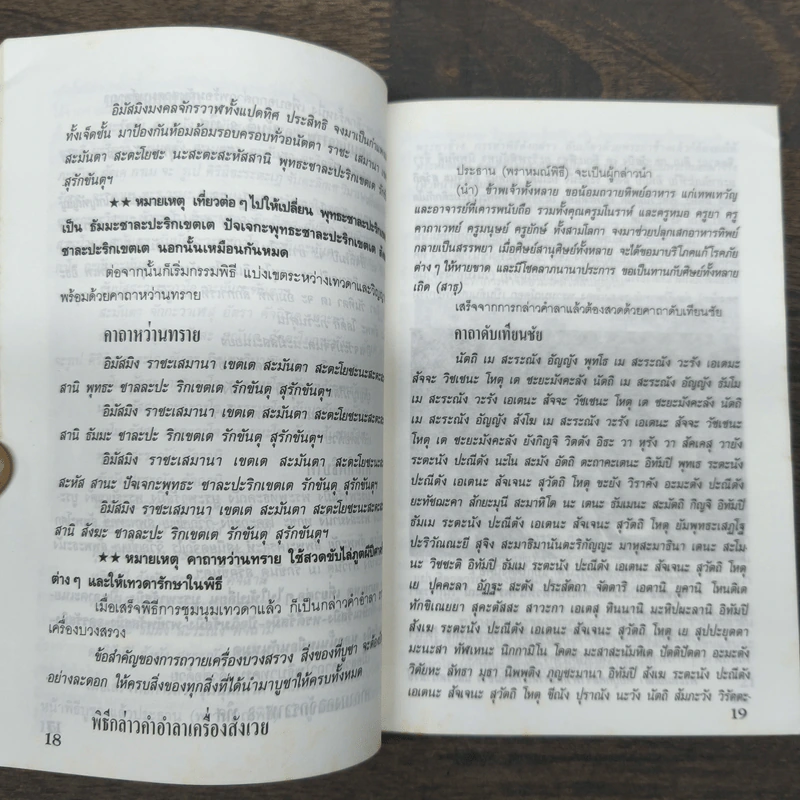 อิมัสมิงมงคลจักรวาฬทั้งแปดทิศ ประสิทธิ จงมาเป็นกำแพง
ทั้งเจ็ดชั้น มาป้องกันห้อมล้อมรอบครอบทั่วอนัตตา ราชะ เสมานา
สะมันตา สะตะโยชะ นะสะตะสะหัสสานิ พุทธะชาละปะริกเขตเต
สุรักขันตุฯ
★★ หมายเหตุ เที่ยวต่อๆ ไปให้เปลี่ยน พุทธะชาละปะริกเขตเต
เป็น ธัมมะชาละปะริกเขตเต ปัจเจกะพุทธะชาละปะริกเขตเต
ชาละปะริกเขตเต นอกนั้นเหมือนกันหมด
ต่อจากนั้นก็เริ่มกรรมพิธี แบ่งเขตระหว่างเทวดาและ
พร้อมด้วยคาถาหว่านทราย
คาถาหว่านทราย
อิมัสมิง ราชะเสมานา เขตเต สะมันตา สะตะโยชะนะสะตะสะหัส
สานิ พุทธะ ชาลละปะ ริกเขตเต รักขันตุ สุรักขันตุฯ
อิมัสมิง ราชะเสมานา เขตเต สะมันตา สะตะโยชะนะสะตะสะหัส
สานิ ธัมมะ ชาละปะ ริกเขตเต รักขันตุ สุรักขันตุฯ
อิมัสมิง ราชะเสมานา เขตเต สะมันตา สะตะโยชะนะสะตะ
สะหัส สานะ ปัจเจกะพุทธะ ชาละปะริกเขตเต รักขันตุ สุรักขันตุฯ
อิมัสมิง ราชะเสมานา เขตเต สะมันตา สะตะโยชะนะสะตะสะหัส
สานิ สังฆะ ชาลละปะ ริกเขตเต รักขันตุ สุรักขันตุฯ
★★ หมายเหตุ คาถาหว่านทราย ใช้สวดขับไล่ภูตผีปีศาจ
ต่างๆ และให้เทวดารักษาในพิธี
เมื่อเสร็จพิธีการชุมนุมเทวดาแล้ว ก็เป็นกล่าวคำอำลา
เครื่องบวงสรวง
ข้อสำคัญของการถวายเครื่องบวงสรวง สิ่งของที่บูชา จะต้อง
อย่างละดอก ให้ครบสิ่งของทุกสิ่งที่ได้นำมาบูชาให้ครบทั้งหมด
พิธีกล่าวคำอำลาเครื่องสังเวย
18
ประธาน (พราหมณ์พิธี) จะเป็นผู้กล่าวนำ
(นำ) ข้าพเจ้าทั้งหลาย ขอน้อมถวายทิพย์อาหาร แก่เทพเทวัญ
และอาจารย์ที่เคารพนับถือ รวมทั้งคุณครูมโนราห์ และครูหมอ ครูยา ครู
คาถาเวทย์ ครูมนุษย์ ครูยักษ์ ทั้งสามโลกา จงมาช่วยปลุกเสกอาหารทิพย์
กลายเป็นสรรพยา เมื่อศิษย์สานุศิษย์ทั้งหลาย จะได้ขอมาบริโภคแก้โรคภัย
ต่างๆ ให้หายขาด และมีโชคลาภนานาประการ ขอเป็นทานกับศิษย์ทั้งหลาย
เถิด (สาธุ)
เสร็จจากการกล่าวคำลาแล้วต้องสวดด้วยคาถาดับเทียนชัย
คาถาดับเทียนชัย
นัตถิ เม สะระณัง อัญญัง พุทโธ เม สะระณัง วะรัง เอเตนะ
สัจจะ วัชเชนะ โหตุ เต ชะยะมังคะลัง นัตถิ เม สะระณัง อัญญัง ธัมโม
เม สะระณัง วะรัง เอเตนะ สัจจะ วัชเชนะ โหตุ เต ชะยะมังคะลัง นัตถิ
เม สะระณัง อัญญัง สังโฆ เม สะระณัง วะรัง เอเตนะ สัจจะ วัชเชนะ
โหตุ เต ชะยะมังคะลัง ยังกิญจิ วิตตัง อิธะ วา หุรัง วา สัคเคสุ วายัง
ระตะนัง ปะณีตัง นะโน สะมัง อัตถิ ตะถาคะเตนะ อิทัมปิ พุทเธ ระตะนัง
ปะณีตัง เอเตนะ สัจเจนะ สุวัตถิ โหตุ ขะยัง วิราคัง อะมะตัง ปะณีตัง
ยะทัชฌะคา สักยะมุนี สะมาหิโต นะ เตนะ ธัมเมนะ สะมัตถิ กิญจิ อิทัมปิ
ธัมเม ระตะนัง ปะณีตัง เอเตนะ สัจเจนะ สุวัตถิ โหตุ ยัมพุทธะเสฏโฐ
ปะริวัณณะยี สุจิง สะมาธิมานันตะริกัญญะ มาหุสะมาธินา เตนะ สะโม
นะ วิชชะติ อิทัมปิ ธัมเม ระตะนัง ปะณีตัง เอเตนะ สัจเจนะ สุวัตถิ โหตุ
เย ปุคคะลา อัฏฐะ สะตัง ประสัตถา จัตตาริ เอตานิ ยุคานิ โหนติเต
ทักขิเณยยา สุคะตัสสะ สาวะกา เอเตสุ ทินนานิ มะหัปผะลานิ อิทัมปิ
สังเฆ ระตะนัง ปะณีตัง เอเตนะ สัจเจนะ สุวัตถิ โหตุ เย สุปปะยุตตา
มะนะสา ทัฬเหนะ นิกกามิโน โคตะ มะสาสะนัมหิเต ปัตติปัตตา อะมะตัง
วิคัยหะ ลัทธา มุธา นิพพุติง ภุญชะมานา อิทัมปิ สังเฆ ระตะนัง ปะณีตัง
เอเตนะ สัจเจนะ สุวัตถิ โหตุ ขีณัง ปุราณัง นะวัง นัตถิ สัมภะวัง วิรัตตะ
19